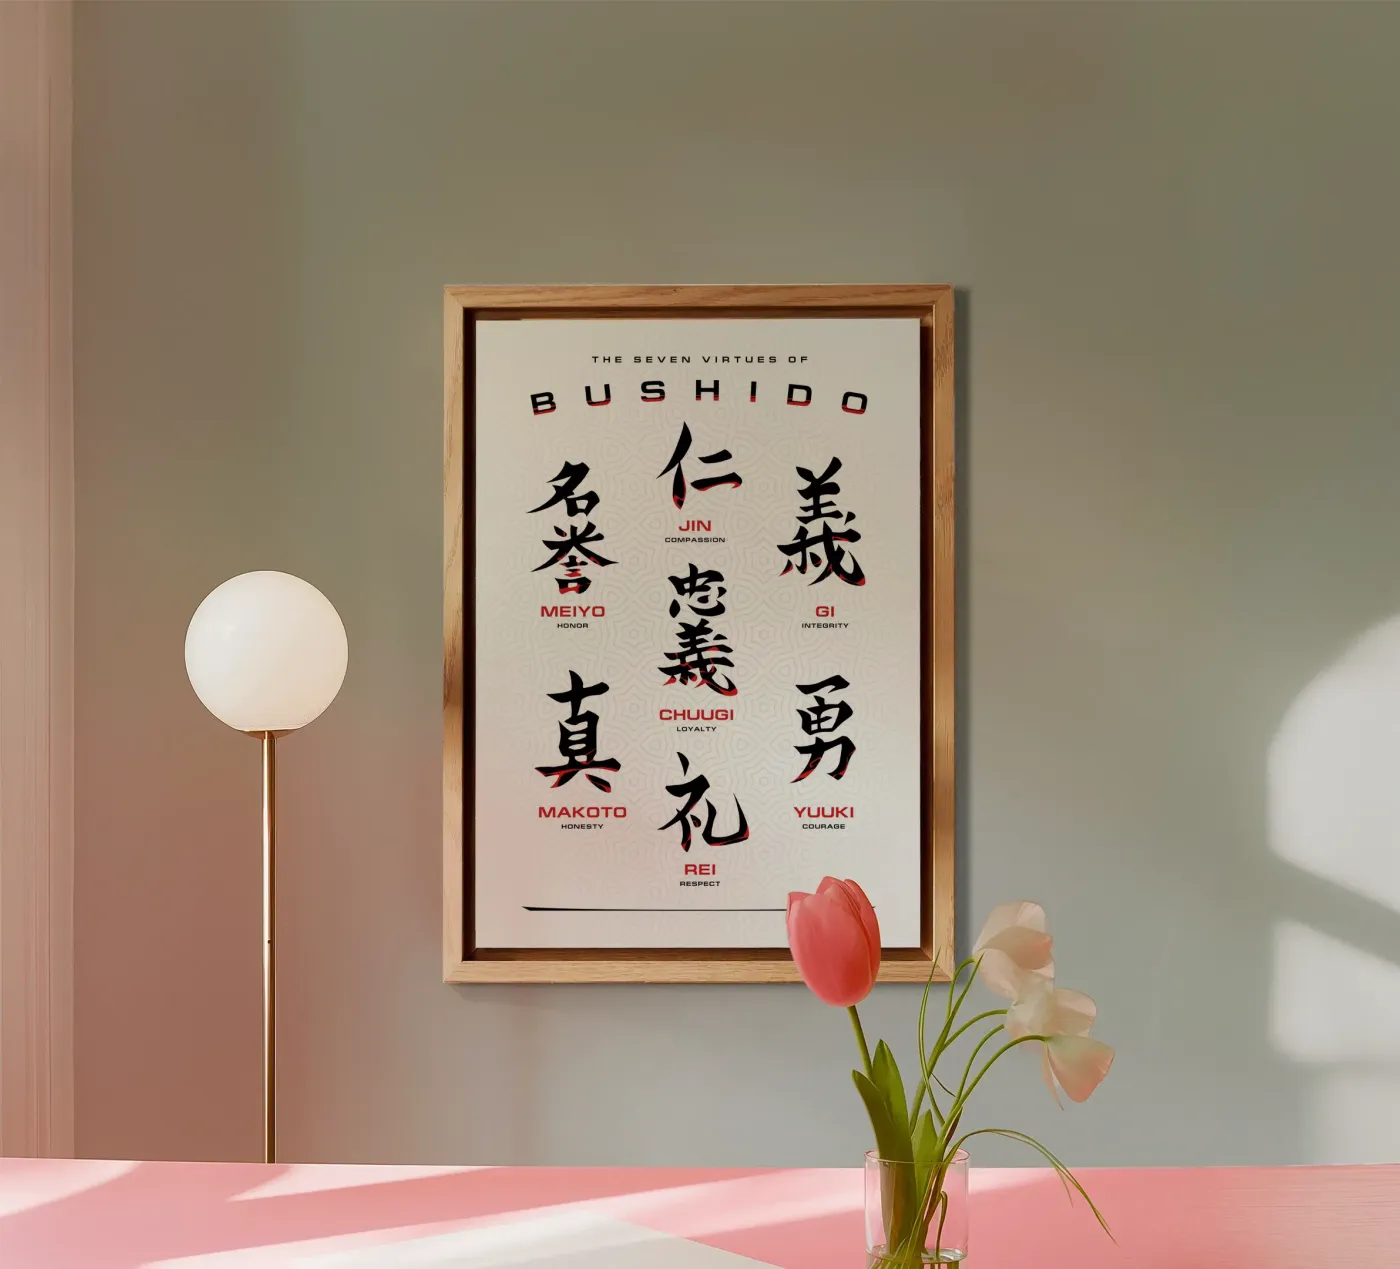 THE SEVEN VIRTUES OF
BUSHIDO
仁
JIN
COMPASSION
名誉
MEIYO
HONOR
義
GI
INTEGRITY
忠義
CHUUGI
LOYALTY
真
MAKOTO
HONESTY
勇
YUUKI
COURAGE
礼
REI
RESPECT